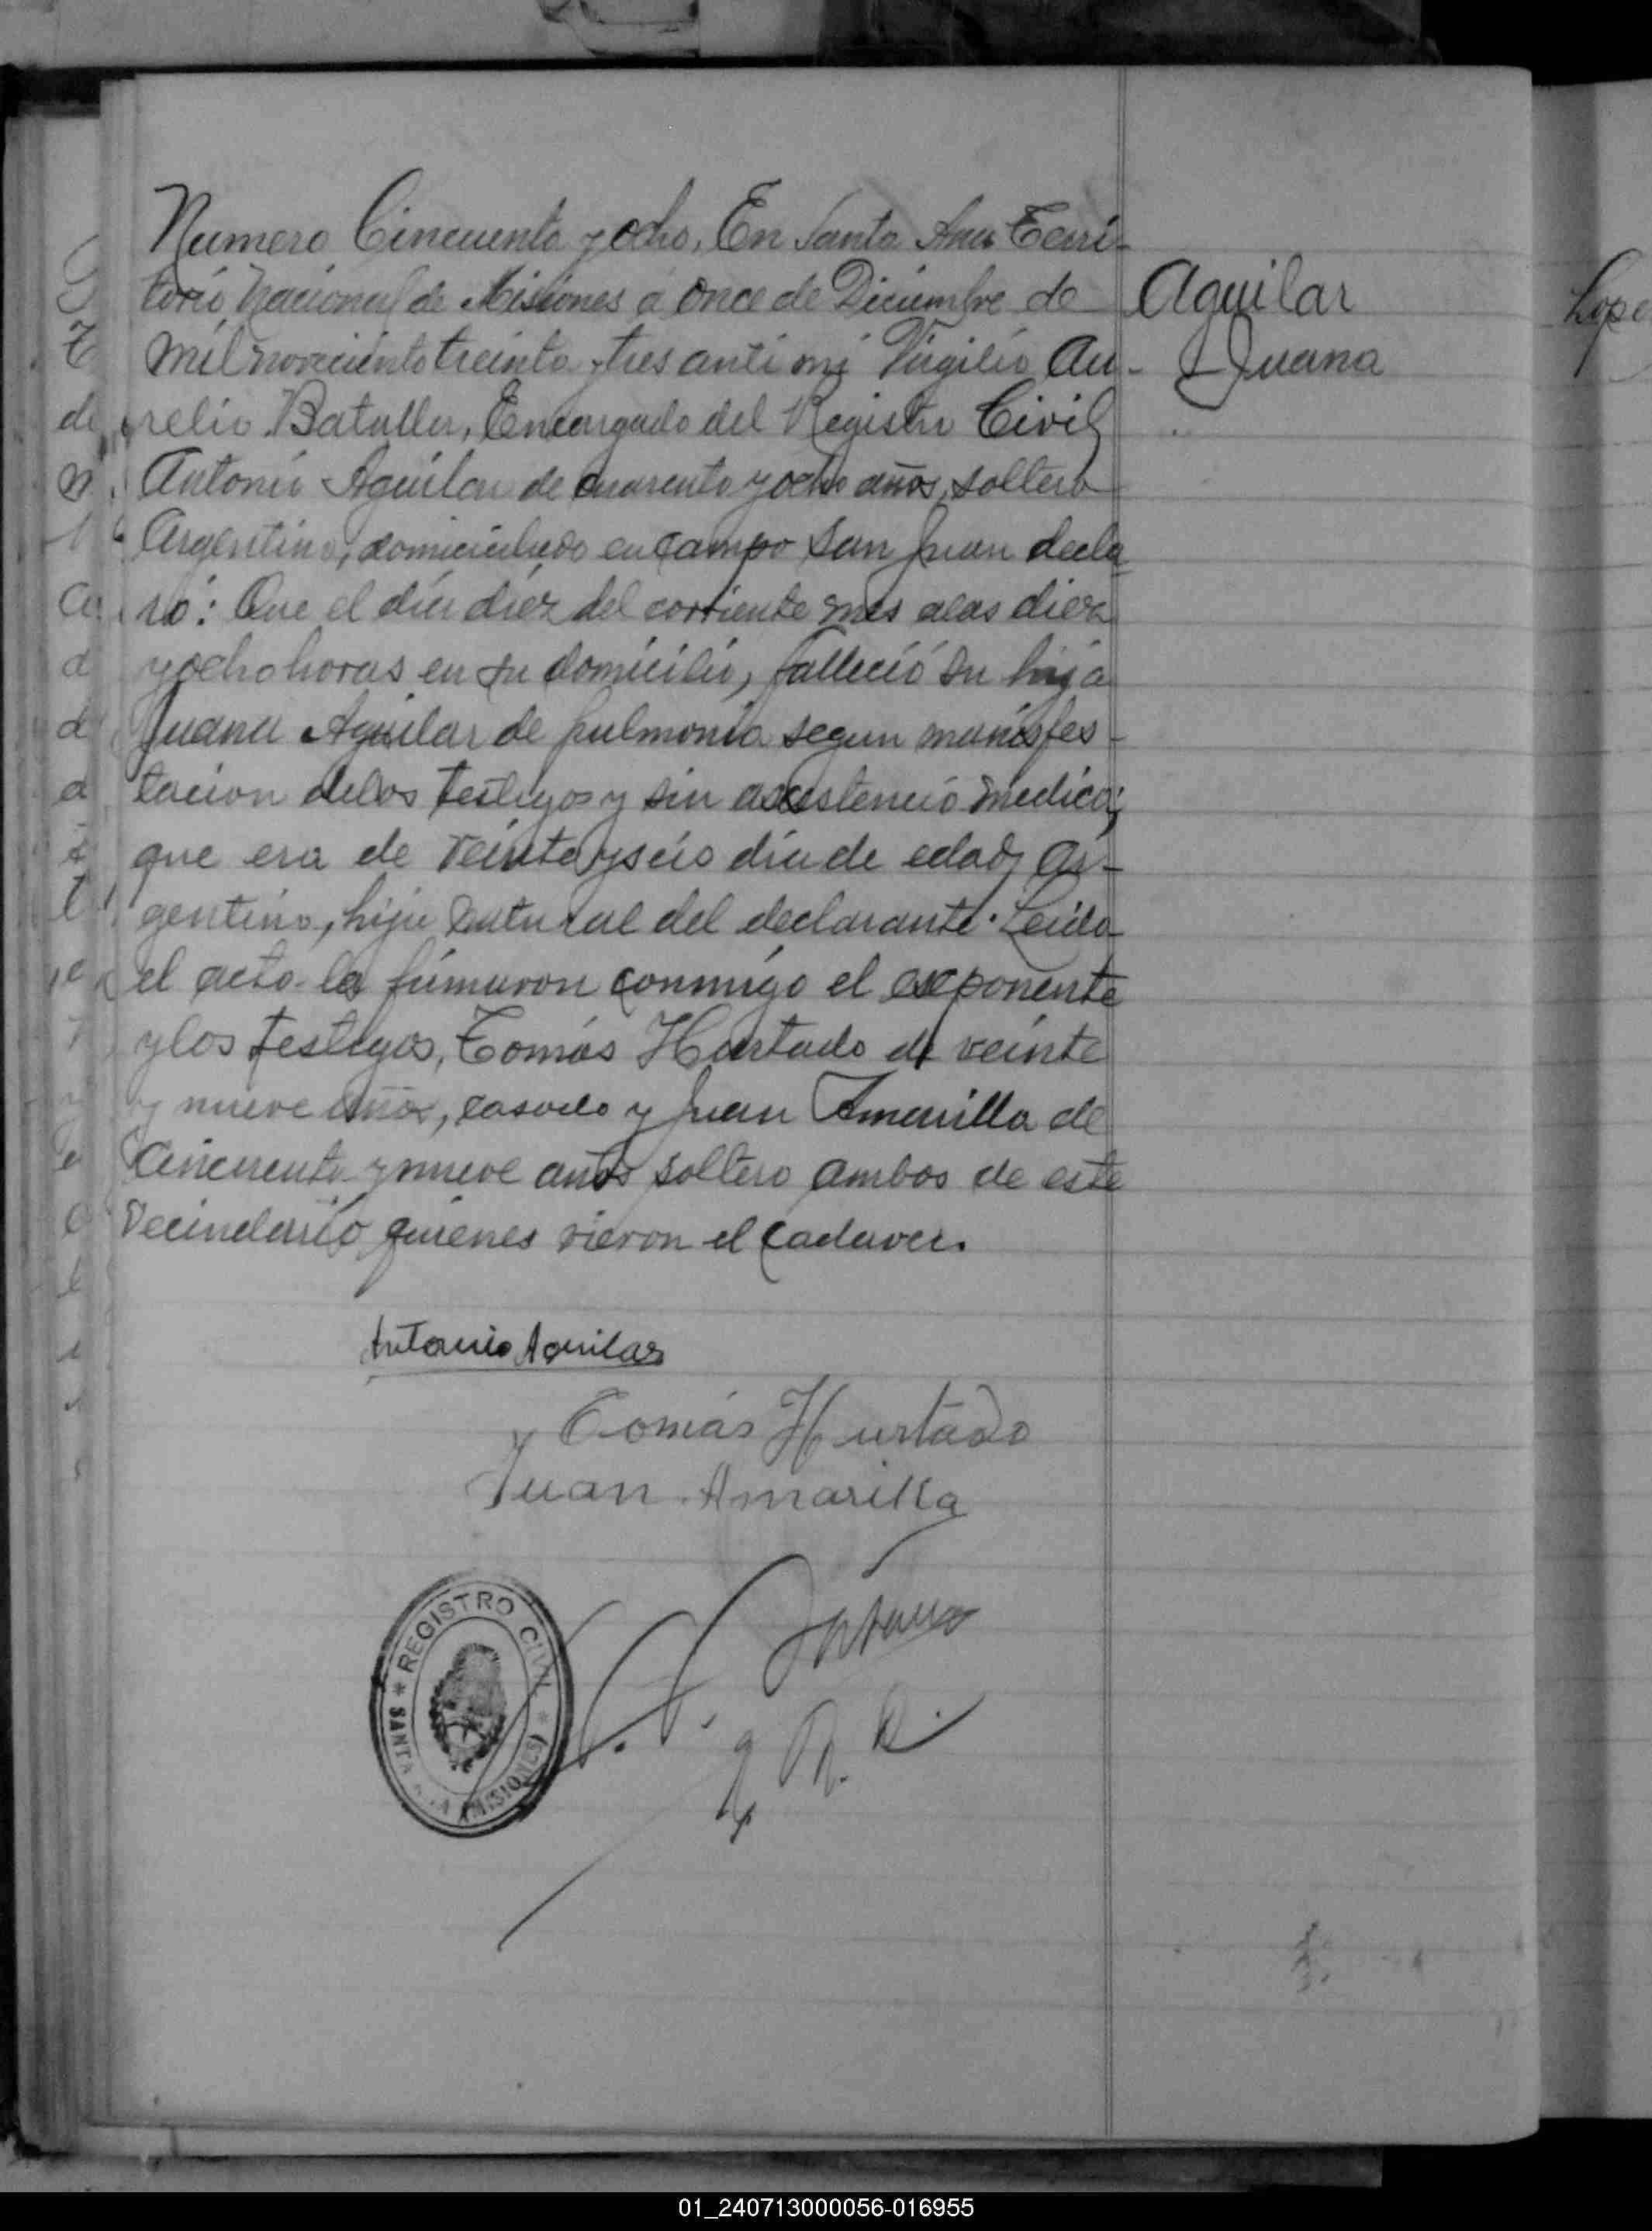 Numero Cincuenta y ocho. En Santa Ana Terri-
torio Nacional de Misiones á once de Diciembre de
mil noveciento treinta y tres anti mi Virgilio Au-
relio Bataller, Encargado del Registro Civil
Antonio Aguilar de cuarenta y ocho años, soltero
Argentino, domiciliado en campo San Juan decla
ró: Que el día diéz del corriente mes alas diez
y ocho horas en su domicilio, falleció su hija
Juana Aguilar de pulmonia segun manifes-
tacion delos testigos y sin asistencia medica;
que era de veinte y seis dia de edad, ar-
gentino, hija natural del declarante. Leida
el acta la firmaron conmigo el exponente
y los testigos, Tomás Hurtado de veinte
y nueve años, casado y Juan Amarilla de
cincuenta y nueve años soltero ambos de este
vecindario quienes vieron el cadaver.
Aguilar
Juana
Antonio Aguilar
Tomás Hurtado
Juan Amarilla
REGISTRO CIVIL
SANTA ANA (MISIONES)
Lope
01_240713000056-016955